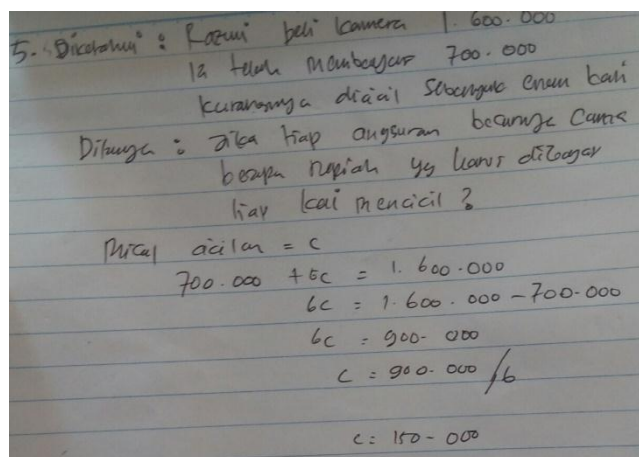 5. Diketahui : Rozmi beli kamera 1.600.000
Ia telah membayar 700.000
kurangnya dicicil sebanyak enam kali
Ditanya : Jika tiap angsuran besarnya Cama
berapa rupiah yg harus dibayar
tiap kali mencicil ?
Misal cicilan = c
700.000 + 6c = 1.600.000
6c = 1.600.000 - 700.000
6c = 900.000
c = 900.000 / 6
c = 150.000